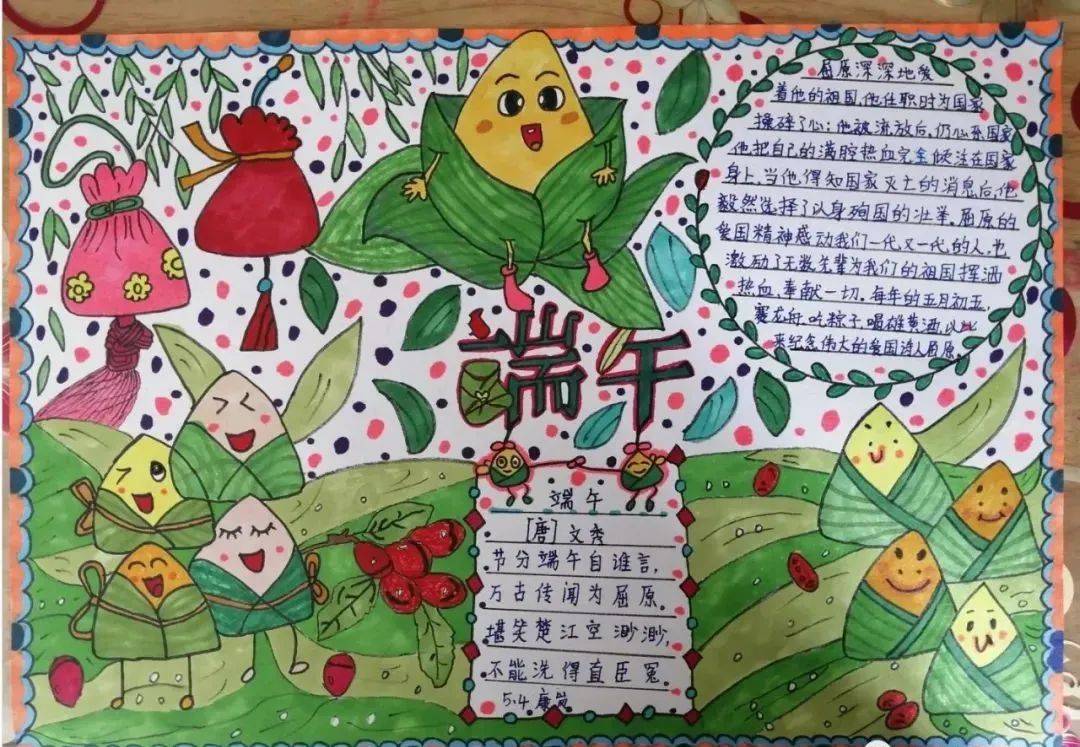 端午
屈原深深地爱
着他的祖国,他任职时为国家
操碎了心;他被流放后,仍心系国家
他把自己的满腔热血完全倾注在国家
身上,当他得知国家灭亡的消息后,他
毅然选择了以身殉国的壮举。屈原的
爱国精神感动我们一代又一代的人,也
激励了无数先辈为我们的祖国挥洒
热血、奉献一切。每年的五月初五,
赛龙舟,吃粽子,喝雄黄酒,以此
来纪念伟大的爱国诗人屈原。
端午
[唐]文秀
节分端午自谁言,
万古传闻为屈原。
堪笑楚江空渺渺,
不能洗得直臣冤。
5.4 康